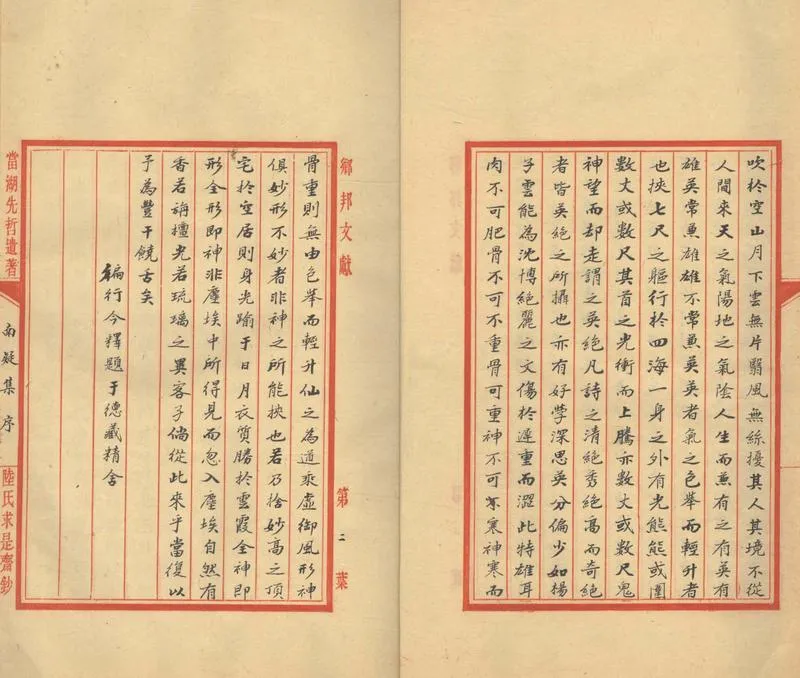 吹於空山月下雲無片翳風無絲擾其人其境不從
人間來天之氣陽地之氣陰人生而兼有之有英有
雄英常兼雄雄不常兼英英者氣之色舉而輕升者
也挾七尺之軀行於四海一身之外有光熊熊或圍
數丈或數尺其首之光衝而上騰亦數丈或數尺鬼
神望而却走謂之英絕凡詩之清絕秀絕高而奇絕
者皆英絕之所攝也亦有好學深思英分偏少如楊
子雲能為沈博絕麗之文傷於遲重而澀此特雄耳
肉不可肥骨不可不重骨可重神不可寒神寒而
鄉邦文獻
第二葉
骨重則無由色舉而輕升仙之為道乘虛御風形神
俱妙形不妙者非神之所能挾也若乃捨妙高之頂
宅於空居則身光踰于日月衣質勝於雲霞全神即
形全形即神非塵埃中所得見而忽入塵埃自然有
香若旃檀光若琉璃之異客子倘從此來乎當復以
予為豐干饒舌矣
徧行今釋題于德藏精舍
當湖先哲遺著
南疑集序
陸氏求是齋鈔